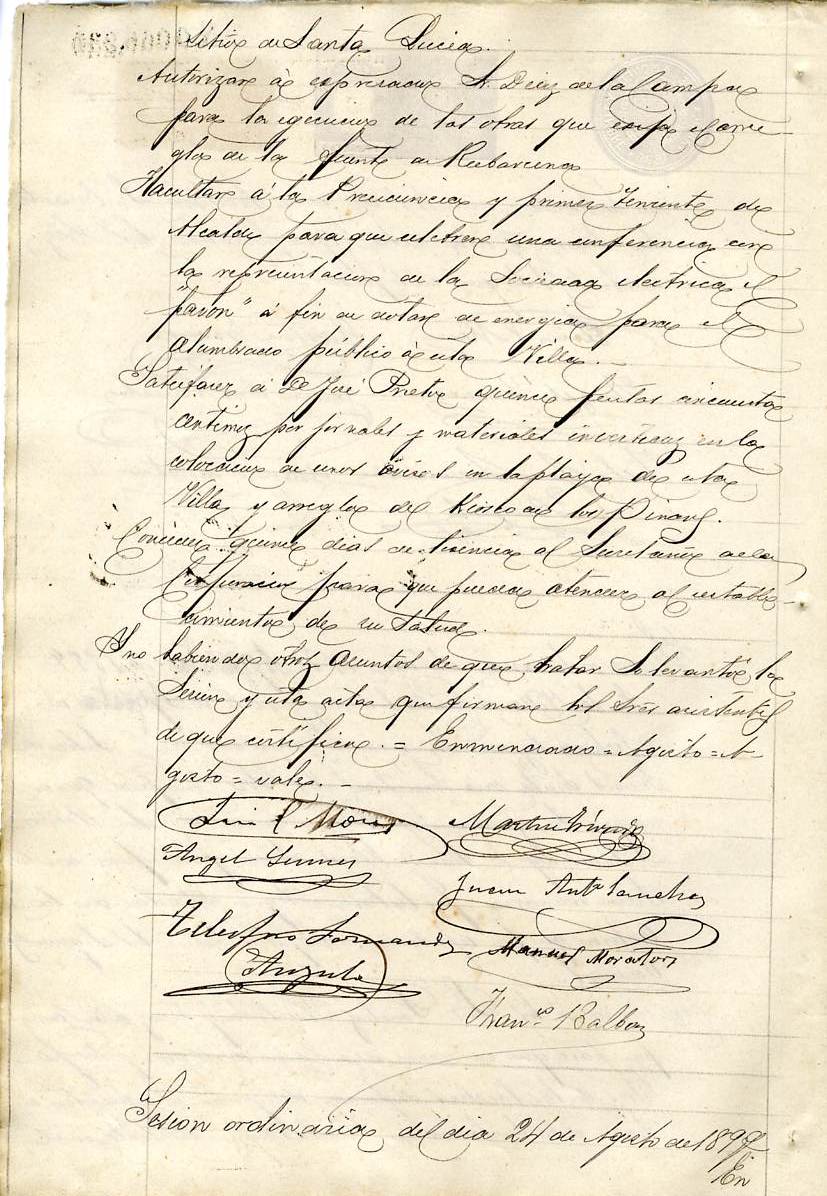 sitios de Santa Lucia.
Autorizar á espresado Sr. Diaz de la Campa
para la egecucion de las obras que exija el arre-
glo de la fuente de
Facultar á la Presidencia y primer Teniente de
Alcalde para que celebren una conferencia con
la representacion de la Sociedad electrica el
á fin de dotar de energia para el
alumbrado público á esta Villa.
Satisfacer á Dn José Prieto quince pesetas cincuenta
centimos por jornales y materiales invertidos en la
colocacion de unos avisos en la playa de esta
Villa y arreglo del Kiosco de los Pinares.
Conceder quince dias de licencia al Secretario de la
Corporacion para que pueda atender al restable-
cimiento de su salud.
Y no habiendo otros asuntos de que tratar se levantó la
Sesion y esta acta que firman los Sres asistentes
de que certifico. = Enmendado = Agosto = A-
gosto = vale.
Martin
Angel
Juan Antº Sanchez
Telesforo Fernandez
Manuel
Angulo
Franco Balbas
Sesion ordinaria del dia 24 de Agosto de 1897
En